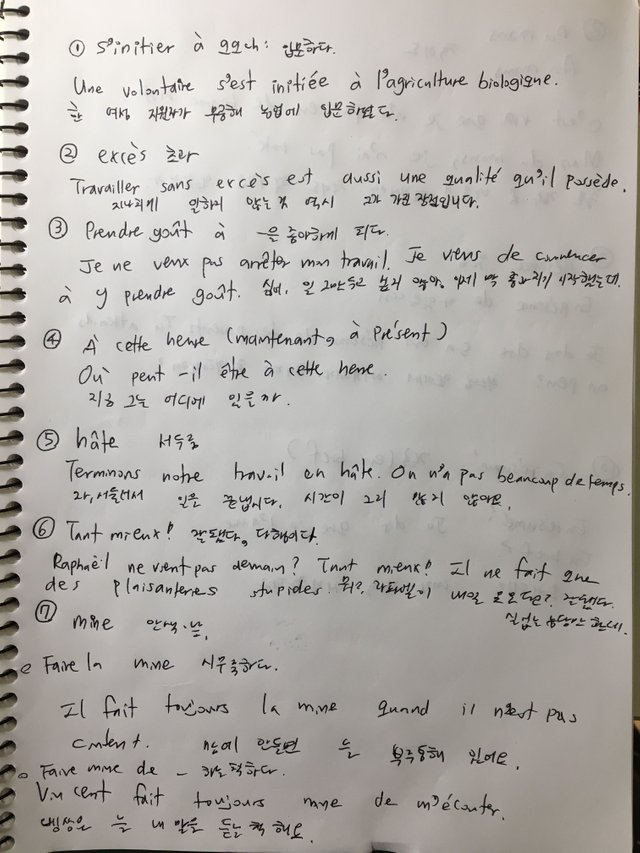 ① s'initier à qqch : 입문하다.
Une volontaire s'est initiée à l'agriculture biologique.
한 여성 지원자가 무공해 농업에 입문하였다.
② excès 초과
Travailler sans excès est aussi une qualité qu'il possède.
지나치게 일하지 않는 것 역시 그가 가진 장점입니다.
③ Prendre goût à -을 좋아하게 되다.
Je ne veux pas arrêter mon travail. Je viens de commencer
à y prendre goût. 싫어, 일 그만두고 싶지 않아. 이제 막 좋아지기 시작했는데.
④ À cette heure (maintenant, à présent)
Où peut-il être à cette heure.
지금 그는 어디에 있을까.
⑤ hâte 서두름
Terminons notre travail en hâte. On n'a pas beaucoup de temps.
자, 서둘러서 일을 끝냅시다. 시간이 그리 많지 않아요.
⑥ Tant mieux! 잘됐다, 다행이다.
Raphaël ne vient pas demain? Tant mieux! Il ne fait que
des plaisanteries stupides. 뭐? 라파엘이 내일 못온다고? 잘됐다.
실없는 농담만 한다니.
⑦ mine 안색·낯.
Faire la mine 시무룩하다.
Il fait toujours la mine quand il n'est pas
content. 맘에 안들면 늘 부루퉁해 있어요.
Faire mine de - 하는 척하다.
Vincent fait toujours mine de m'écouter.
뱅쌍은 늘 내 말을 듣는 척 해요.